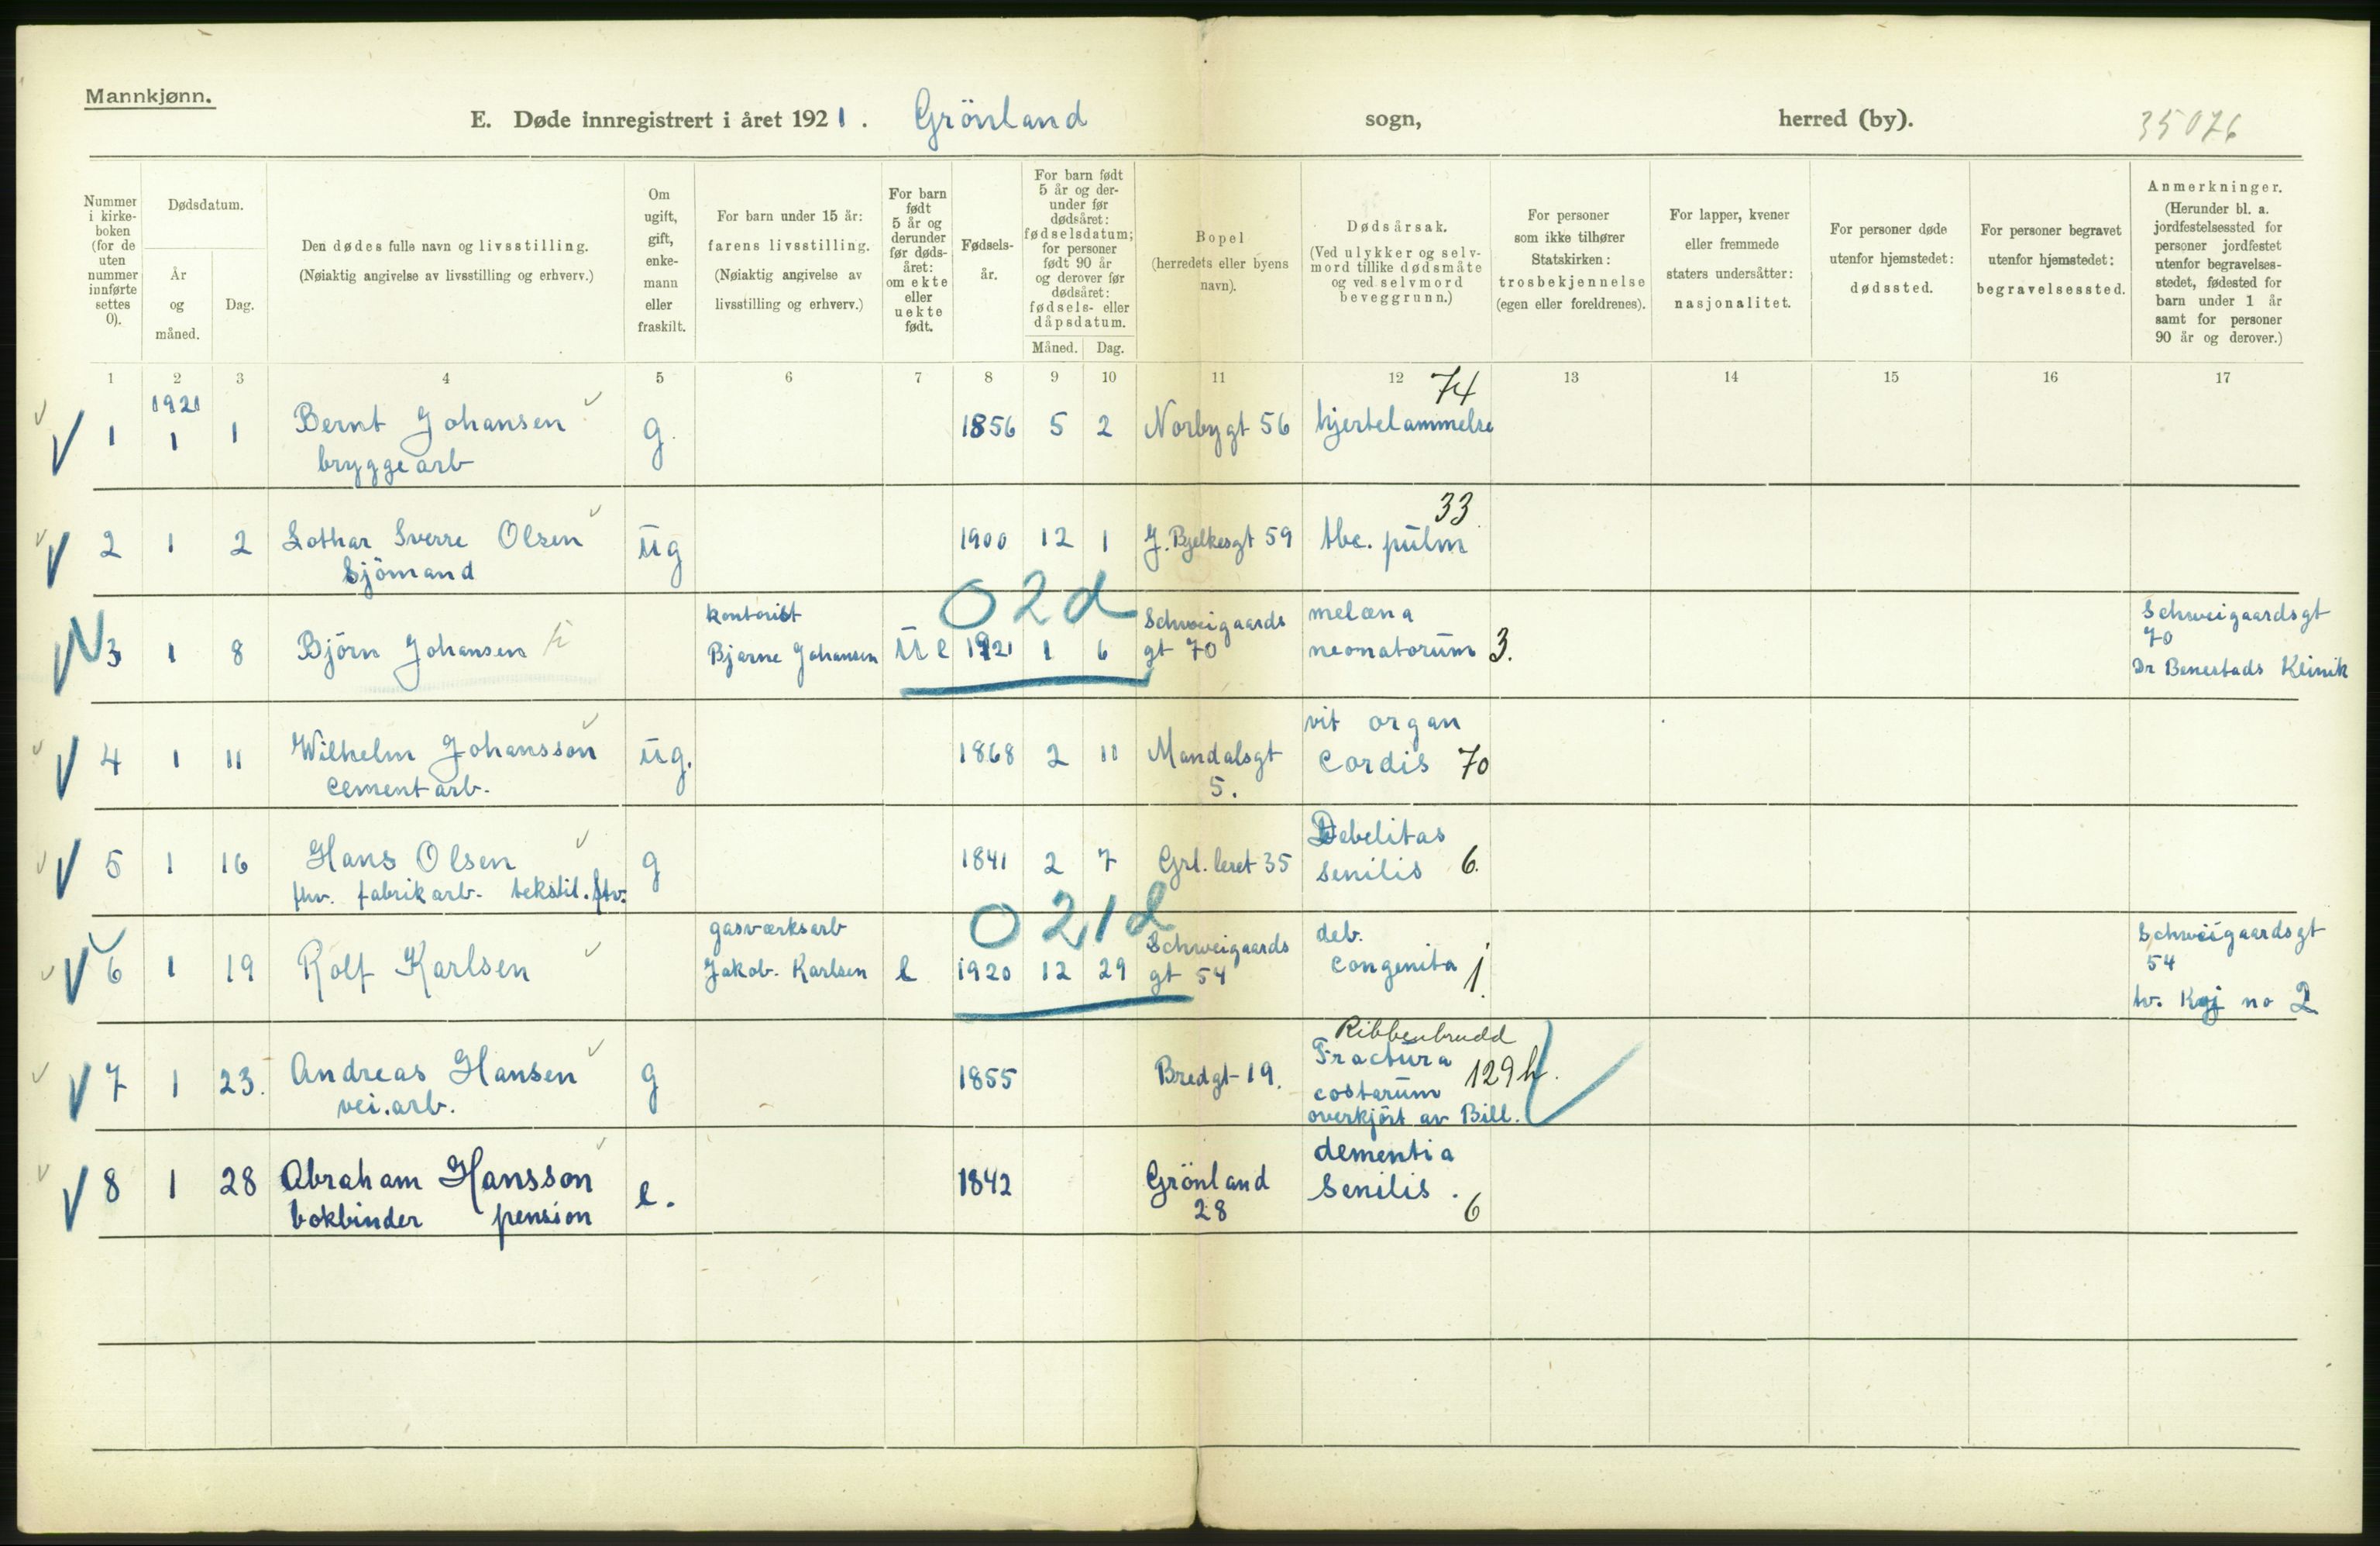 Mannkjønn.
E. Døde innregistrert i året 1921. Grönland sogn, herred (by). 35076
Nummer i kirke-boken (for de uten nummer innførte settes 0).
Dødsdatum.
År og måned.
Dag.
Den dødes fulle navn og livsstilling.
(Nøiaktig angivelse av livsstilling og erhverv.)
Om ugift, gift, enke-mann eller fraskilt.
For barn under 15 år:
farens livsstilling.
(Nøiaktig angivelse av livsstilling og erhverv.)
For barn født 5 år og derunder før døds-året: om ekte eller uekte født.
Fødsels-år.
For barn født 5 år og der-under før dødsåret: fødselsdatum; for personer født 90 år og derover før dødsåret: fødsels- eller dåpsdatum.
Måned. Dag.
Bopel
(herredets eller byens navn).
Dødsårsak.
(Ved ulykker og selv-mord tillike dødsmåte og ved selvmord beveggrunn.)
For personer som ikke tilhører Statskirken: trosbekjennelse (egen eller foreldrenes).
For lapper, kvener eller fremmede staters undersåtter: nasjonalitet.
For personer døde utenfor hjemstedet: dødssted.
For personer begravet utenfor hjemstedet: begravelsessted.
Anmerkninger.
(Herunder bl. a. jordfestelsessted for personer jordfestet utenfor begravelses-stedet, fødested for barn under 1 år samt for personer 90 år og derover.)
1 2 3 4 5 6 7 8 9 10 11 12 13 14 15 16 17
1921 74
1 1 1 Bernt Johansen g. 1856 5 2 Norbygt 56 hjertelammelse
bryggearb
33
2 1 2 Lothar Sverre Olsen ug 1900 12 1 J. Bjelkesgt 59 tbc. pulm
Sjömand
02d
kontorist Schweigaards melæna Schweigaardsgt
3 1 8 Björn Johansen Bjarne Johansen u e 1921 1 6 gt 70 neonatorum 3. 70
Dr Benestads Klinik
vit organ
4 1 11 Wilhelm Johansson ug. 1868 2 11 Mandalsgt Cordis 70
cementarb. 5.
Debelitas
5 1 16 Hans Olsen g 1841 2 7 Grl. leret 35 senilis 6.
fhv. fabrikarb. tekstil. fhv.
021d
gasværksarb Schweigaards deb. Schweigaardsgt
6 1 19 Rolf Karlsen Jakob. Karlsen e 1920 12 29 gt 54 congenita 1. 54
tv. Kgj no 2
Ribbenbrudd
Fractura
7 1 23. Andreas Hansen g 1855 Bredgt 19. costarum 129h.
vei.arb. overkjört av Bill.
dementia
8 1 28 Abraham Hansson e. 1842 Grönland senilis.
bokbinder pension 28 6